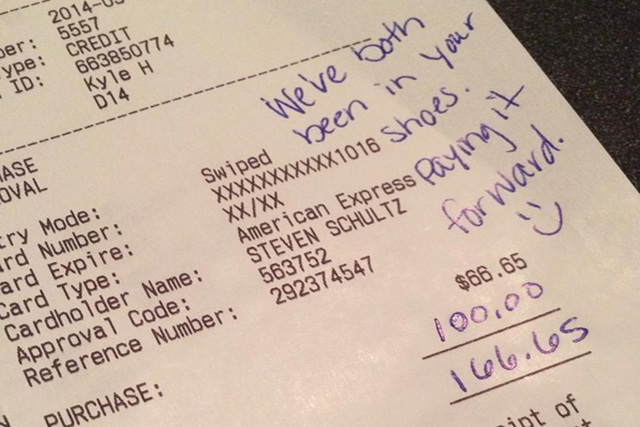 2014-0
ber: 5557
ype: CREDIT
ID: 663850774
Kyle H
D14
We've both
been in your
shoes.
Paying it
forward.
HASE
OVAL
try Mode: Swiped
rd Number: XXXXXXXXXXX1016
ard Expire: XX/XX
Card Type: American Express
Cardholder Name: STEVEN SCHULTZ
Approval Code: 563752
Reference Number: 292374547
$66.65
100.00
166.65
N PURCHASE:
ipt of